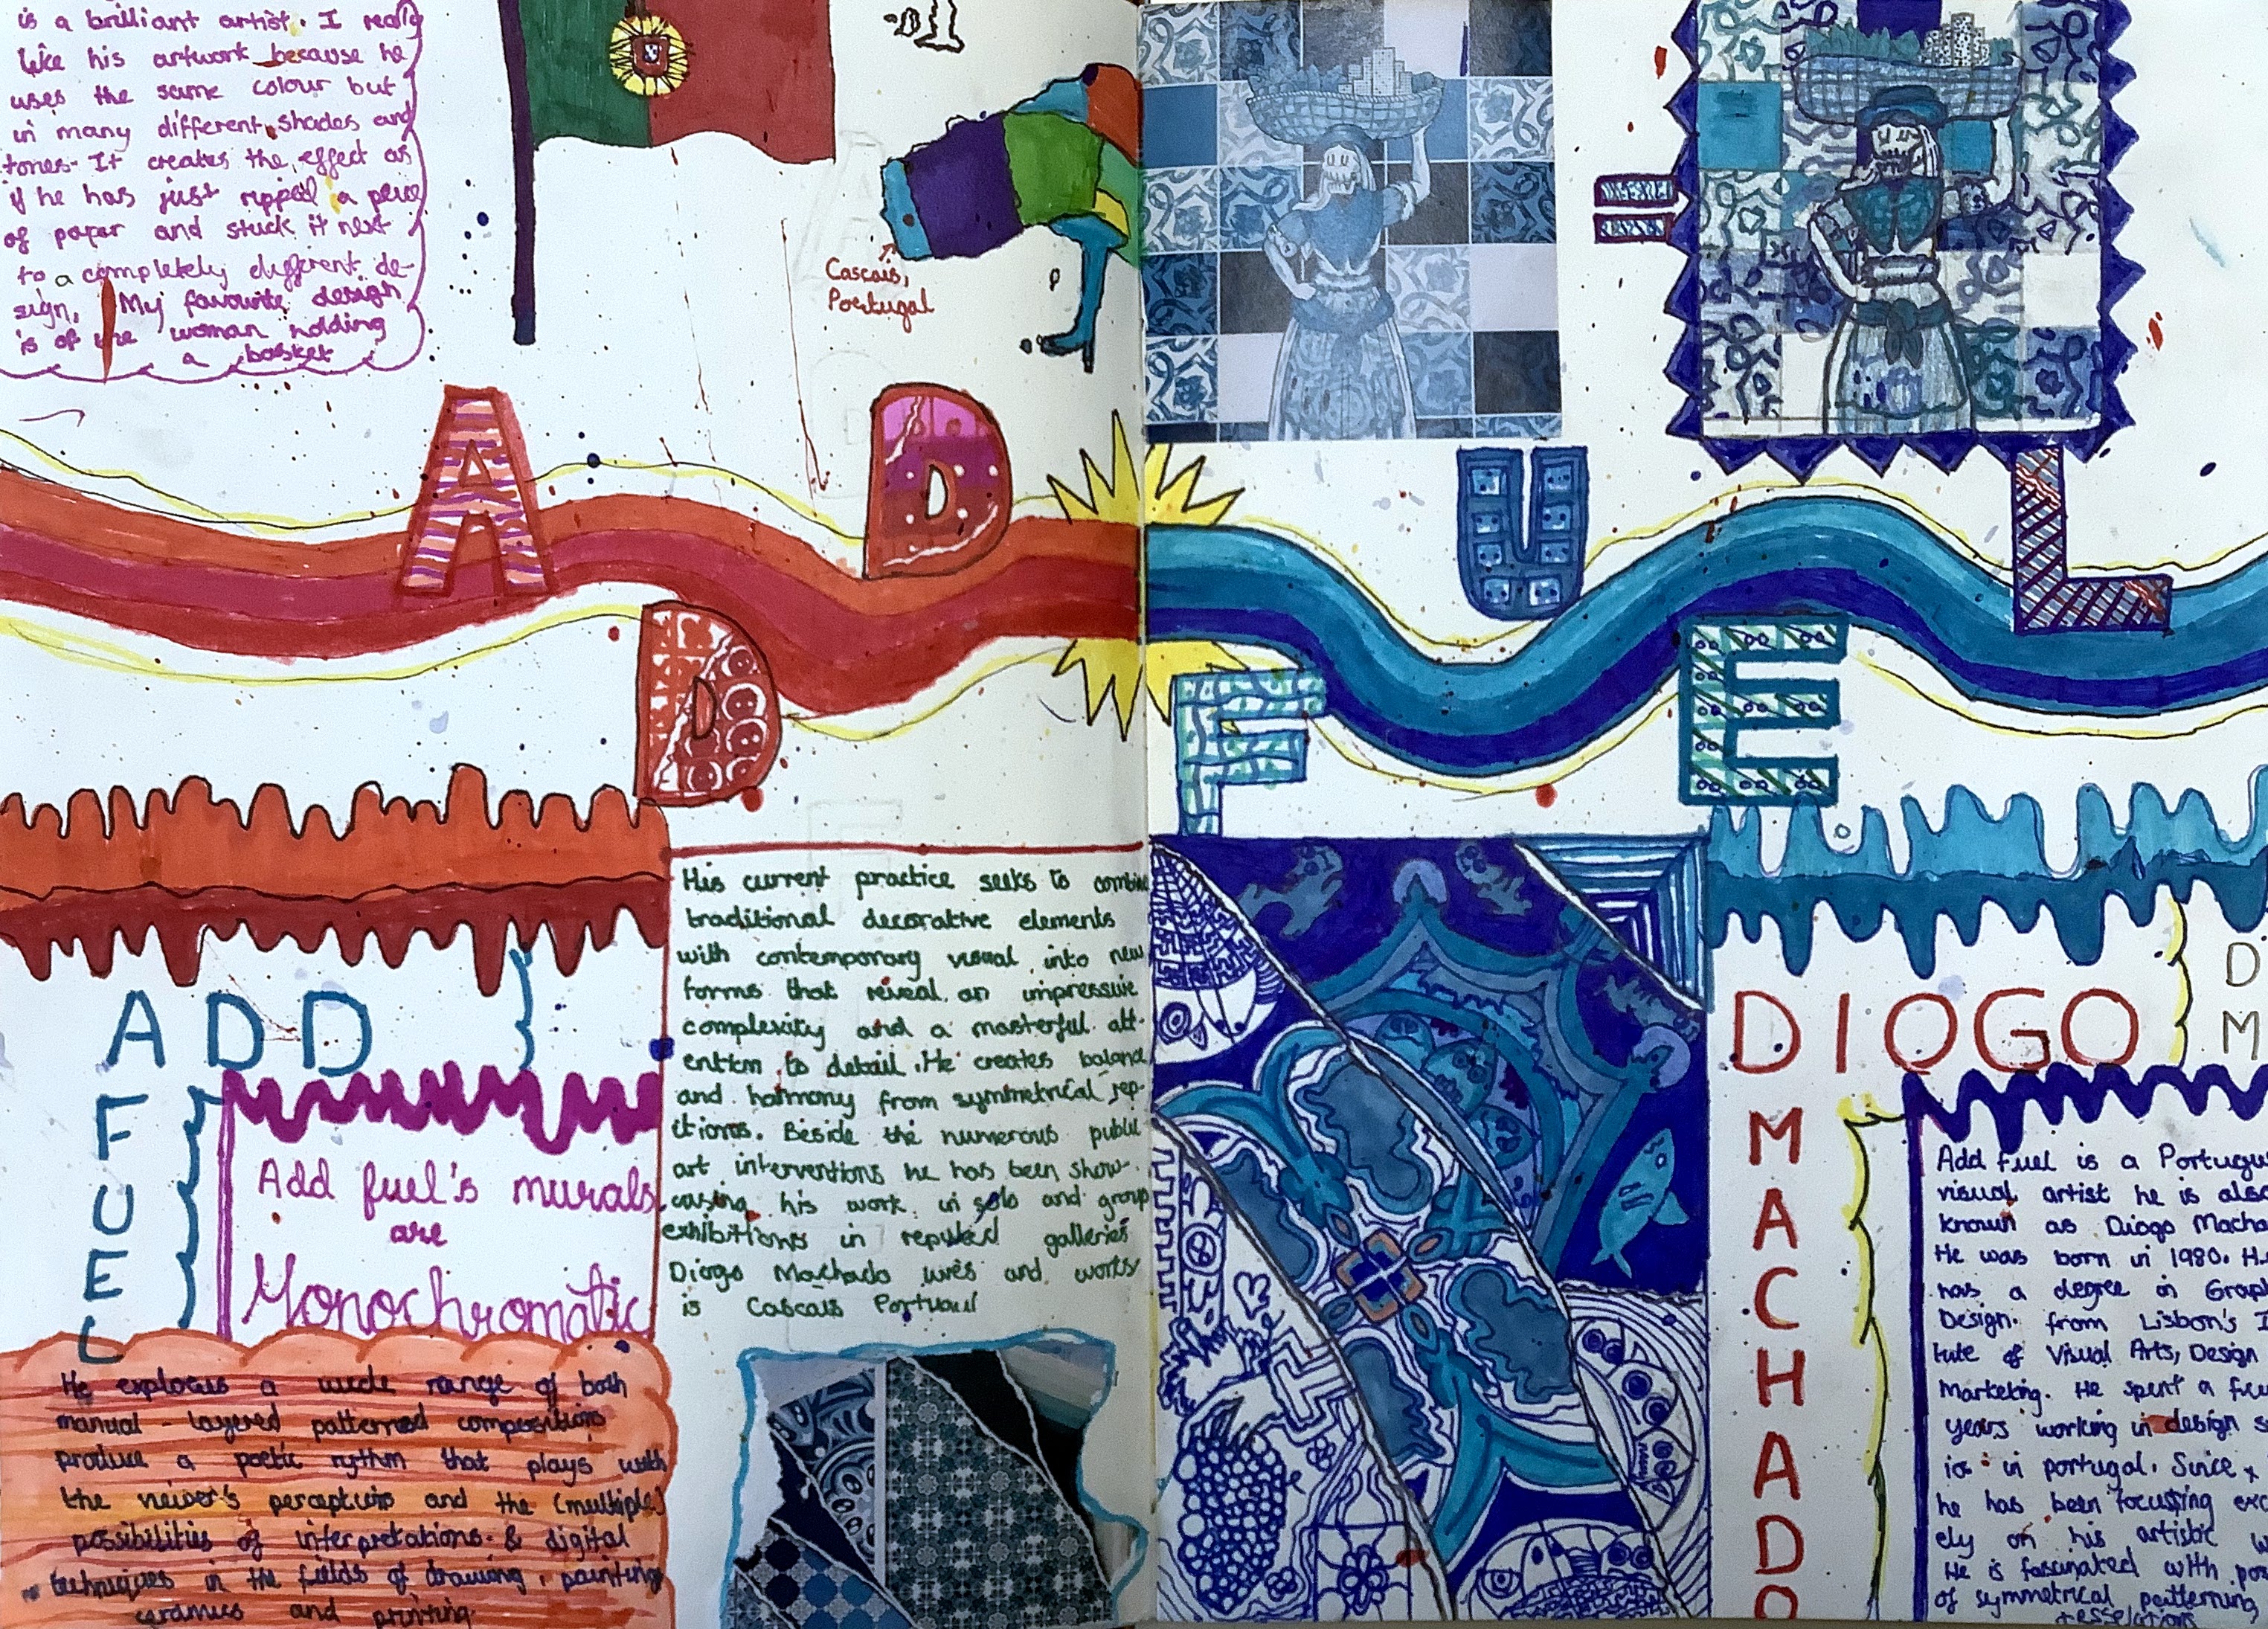 is a brilliant artist. I really
like his artwork because he
uses the same colour but
in many different shades and
tones. It creates the effect as
if he has just ripped a peice
of paper and stuck it next
to a completely different de-
sign, My favourite design
is of the woman holding
a basket
Cascais,
Portugal
A D D F U E L
ADD
F
U
E
L
Add fuel's murals
are
Monochromatic
He explores a wide range of both
manual - layered patterned compositions
produce a poetic rythm that plays with
the veiwer's perceptions and the (multiple)
possibilities of interpretations. & digital
techniques in the fields of drawing, painting
ceramics and printing
His current practice seeks to combine
traditional decorative elements
with contemporary visual into new
forms that reveal an impressive
complexity and a masterful att-
ention to detail. He creates balance
and harmony from symmetrical rep-
itions. Beside the numerous public
art interventions he has been show-
casing his work in solo and group
exhibitions in reputed galleries
Diogo Machado lives and works
is Cascais Portugal
DIOGO
M
A
C
H
A
D
O
D
M
Add fuel is a Portugu
visual artist he is also
known as Diogo Macha
He was born in 1980. H
has a degree in Grap
Design. from Lisbon's I
tute of Visual Arts, Design
Marketing. He spent a few
years working in design s
ios in portugal. Since
he has been focussing exc
ely on his artistic w
He is fascinated with pos
of symmetrical patterning,
tesselations